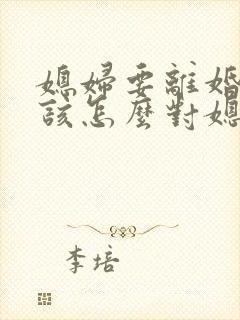 媳婦要離婚
該怎麼對媳
李培